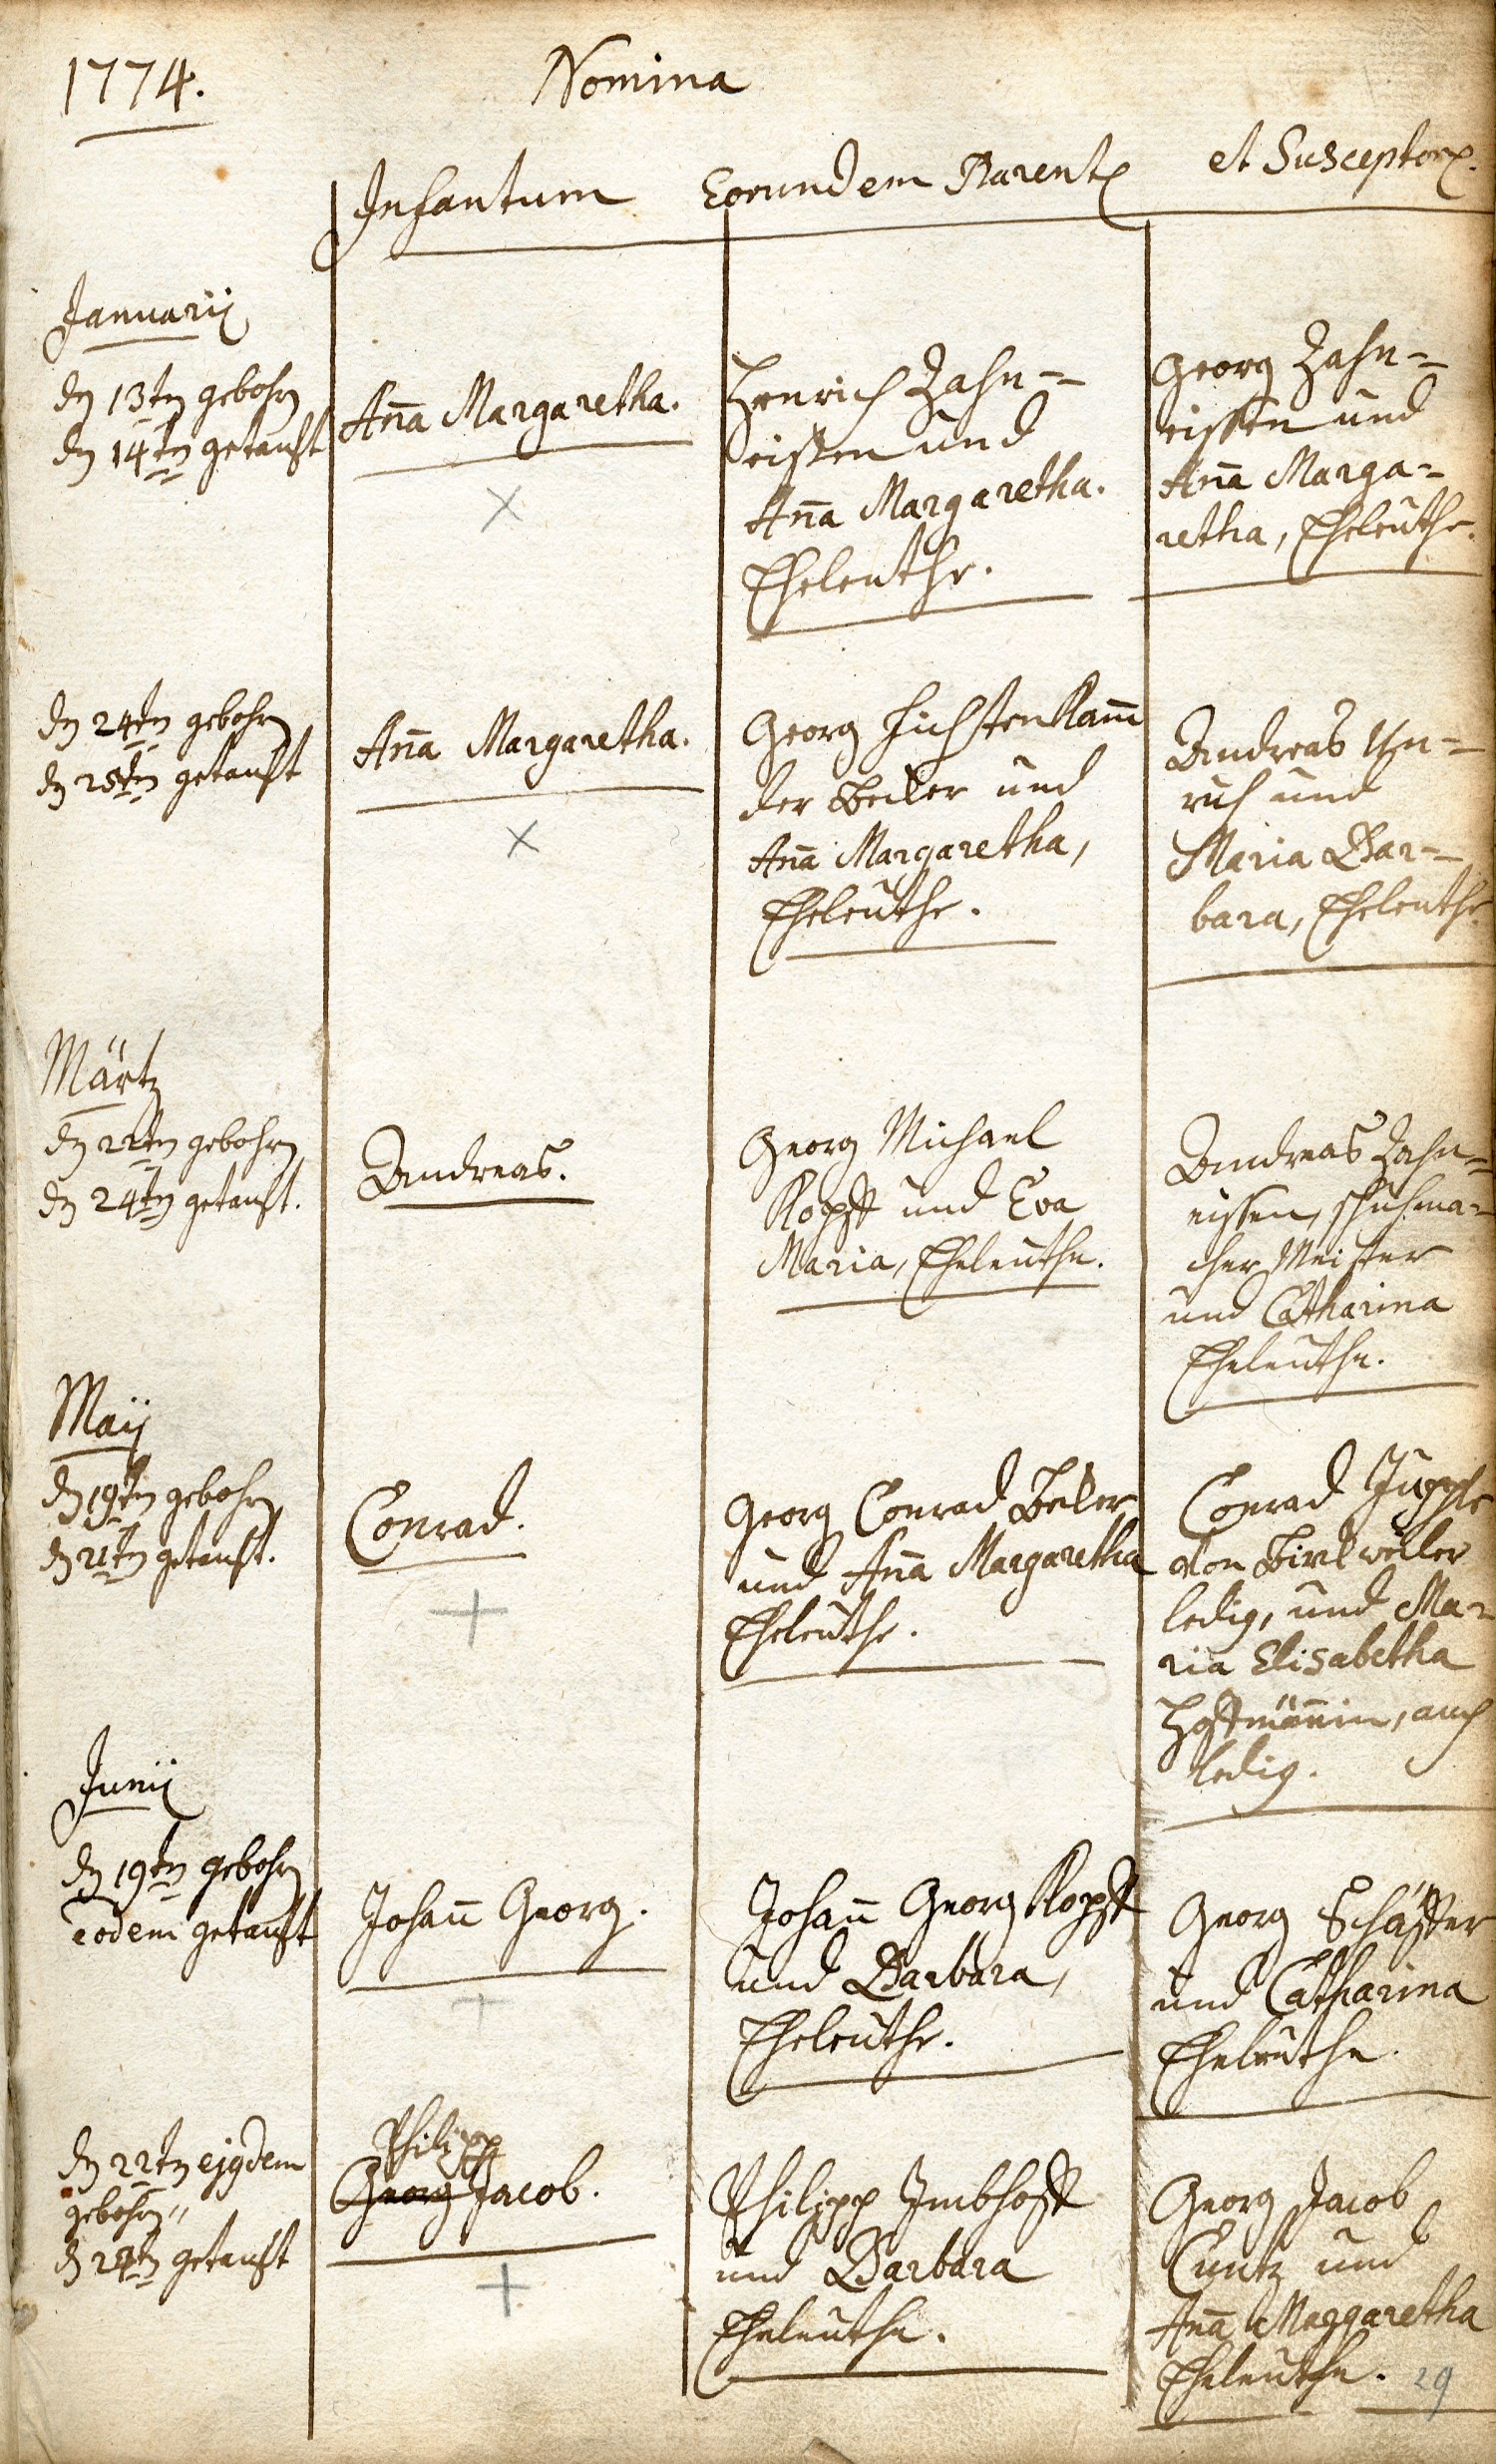 1774.
Nomina
Infantum
Eorundem Parent.
et Susceptor.
Januarij
dn 13tn gebohrn
dn 14tn getauft
Aña Margaretha.
Henrich Zahn=
eissen und
Aña Margaretha.
Eheleuthe.
Georg Zahn=
eissen und
Aña Marga=
retha, Eheleuthe.
dn 24tn gebohrn
dn 25tn getauft
Aña Margaretha.
Georg Fichtenkam̃
der Becker und
Aña Margaretha,
Eheleuthe.
Andreas Un=
ruh und
Maria Bar=
bara, Eheleuthe
Märtz
dn 22tn gebohrn
dn 24tn getauft.
Andreas.
Georg Michael
Kopff und Eva
Maria, Eheleuthe.
Andreas Zahn=
eissen, schuhma=
cher Meister
und Catharina
Eheleuthe.
Maij
dn 19tn gebohrn
dn 21tn getauft.
Conrad.
Georg Conrad Becker
und Aña Margaretha
Eheleuthe.
Conrad
von
ledig, und Ma=
ria Elisabetha
Hoffmäñin, auch
ledig.
Junij
dn 19tn gebohrn
eodem getauft
Johañ Georg.
Johañ Georg Kopff
und Barbara,
Eheleuthe.
Georg Schäffer
und Catharina
Eheleuthe.
dn 22tn ejusdem
gebohrn
dn 24tn getauft
Philipp
Georg Jacob.
Philipp Imbhoff
und Barbara
Eheleuthe.
Georg Jacob
Cuntz und
Aña Maggaretha
Eheleuthe.
29